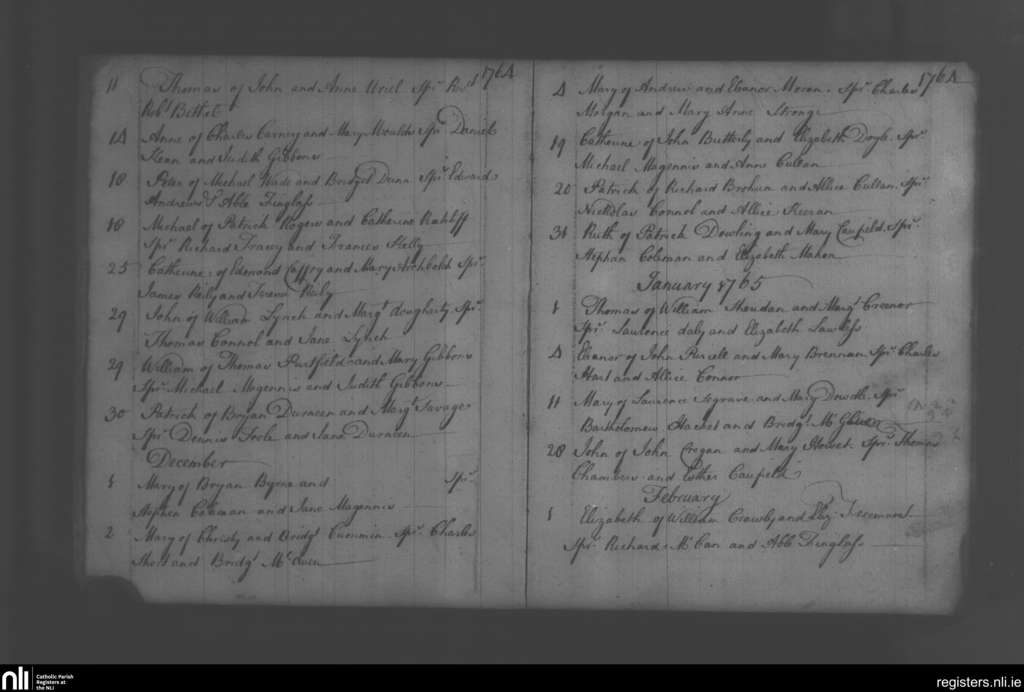 1764
11 Thomas of John and Anne Uriel Spr. Revd
Robt Bethel
14 Anne of Charles Carney and Mary Moulds Spr. Daniel
Kean and Judith Gibbons
18 Peter of Michael Wade and Bridget Dunn Spr. Edward
Andrews & Able Finglass
18 Michael of Patrick Rogers and Catherine Ratcliff
Spr. Richard Tracey and Frances Kelly
25 Catherine of Edmond Caffry and Mary Archbold Spr.
James Reily and Reily
29 John of William Lynch and Margt dougharty Spr.
Thomas Connol and Jane Lynch
29 William of Thomas and Mary Gibbons
Spr. Michael Magennis and Judith Gibbons
30 Patrick of Bryan Durneen and Margt Savage
Spr. Dennis Toole and Jane Durneen
December
1 Mary of Bryan Byrne and Spr.
Stephen and Jane Magennis
2 Mary of Christy and Bridgt Cummin Spr. Charles
Short and Bridgt Mc Owen
1764
4 Mary of Andrew and Eleanor Moran. Spr. Charles
Morgan and Mary Anne Strong
19 Catherine of John Butterly and Elizabeth Doyle. Spr.
Michael Magennis and Anne Cullan
20 Patrick of Richard and Allice Cullan. Spr.
Nickolas Connol and Allice Keeran
31 Ruth of Patrick Dowling and Mary Caufield. Spr.
Stephan Coleman and Elizabeth Mahon
January 1765
1 Thomas of William Sheridan and Margt Creenor
Spr. Lawrence daly and Elizabeth Lawless
4 Eleanor of John Purcell and Mary Brennan Spr. Charles
Hart and Allice Connor
11 Mary of Laurence Segrave and Mary Dowdle Spr.
Bartholomew Hacket and Bridgt Mc
28 John of John Cregan and Mary Spr. Thomas
Chambers and Esther Caufield
February
1 Elizabeth of William Crawly and Eliz.
Spr. Richard Mc Can and Able Finglass
nli Catholic Parish
Registers at
the NLI
registers.nli.ie